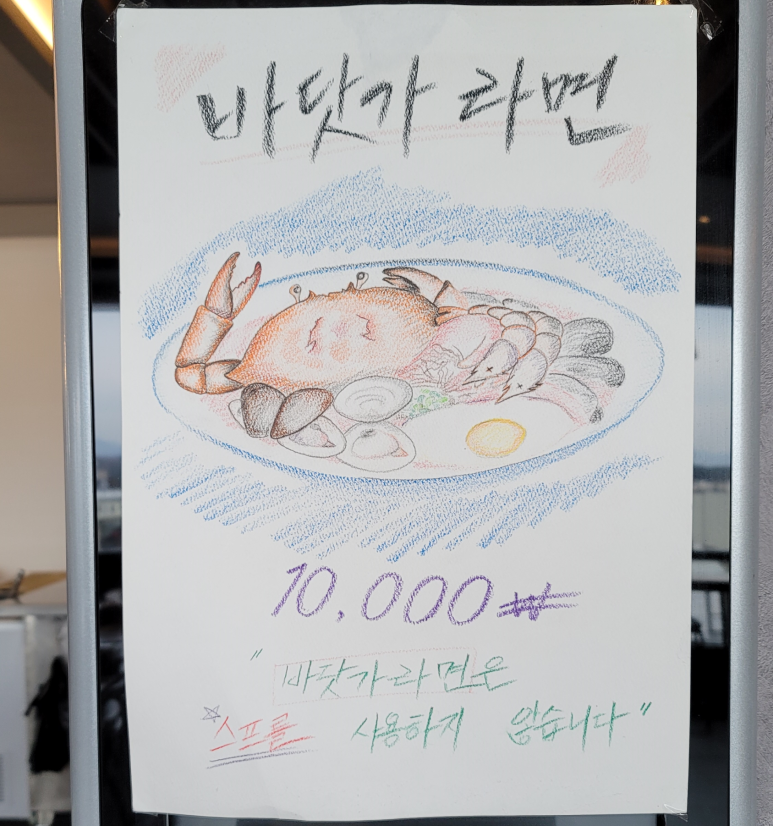 바닷가 라면
10,000₩
"바닷가라면은
☆스프를 사용하지 않습니다"